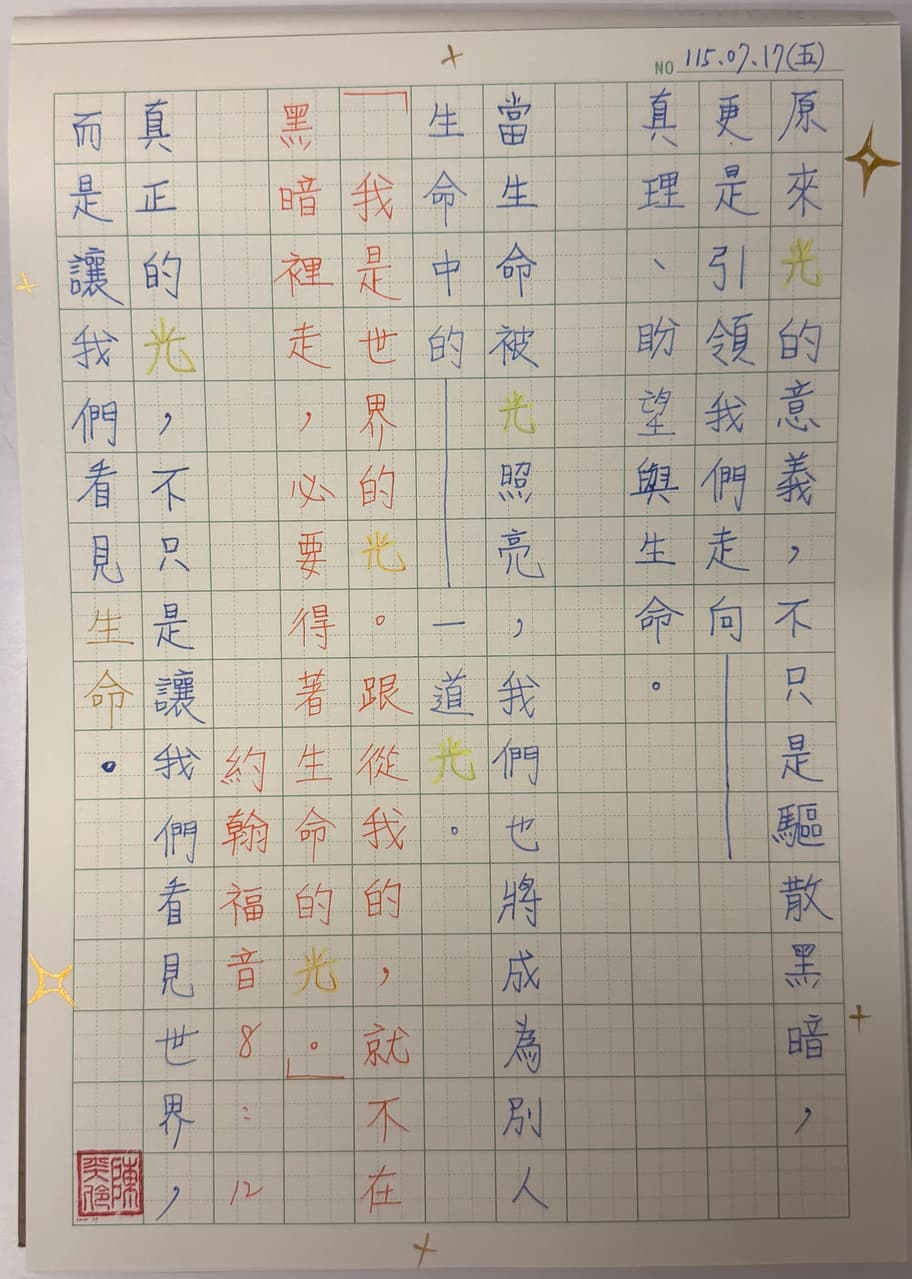 NO 115.07.17(五)
原來光的意義，不只是驅散黑暗，
更是引領我們走向——
真理、盼望與生命。
當生命被光照亮，我們也將成為別人
生命中的——一道光。
「我是世界的光。跟從我的，就不在
黑暗裡走，必要得著生命的光。」
約翰福音8:12
真正的光，不只是讓我們看見世界，
而是讓我們看見生命。